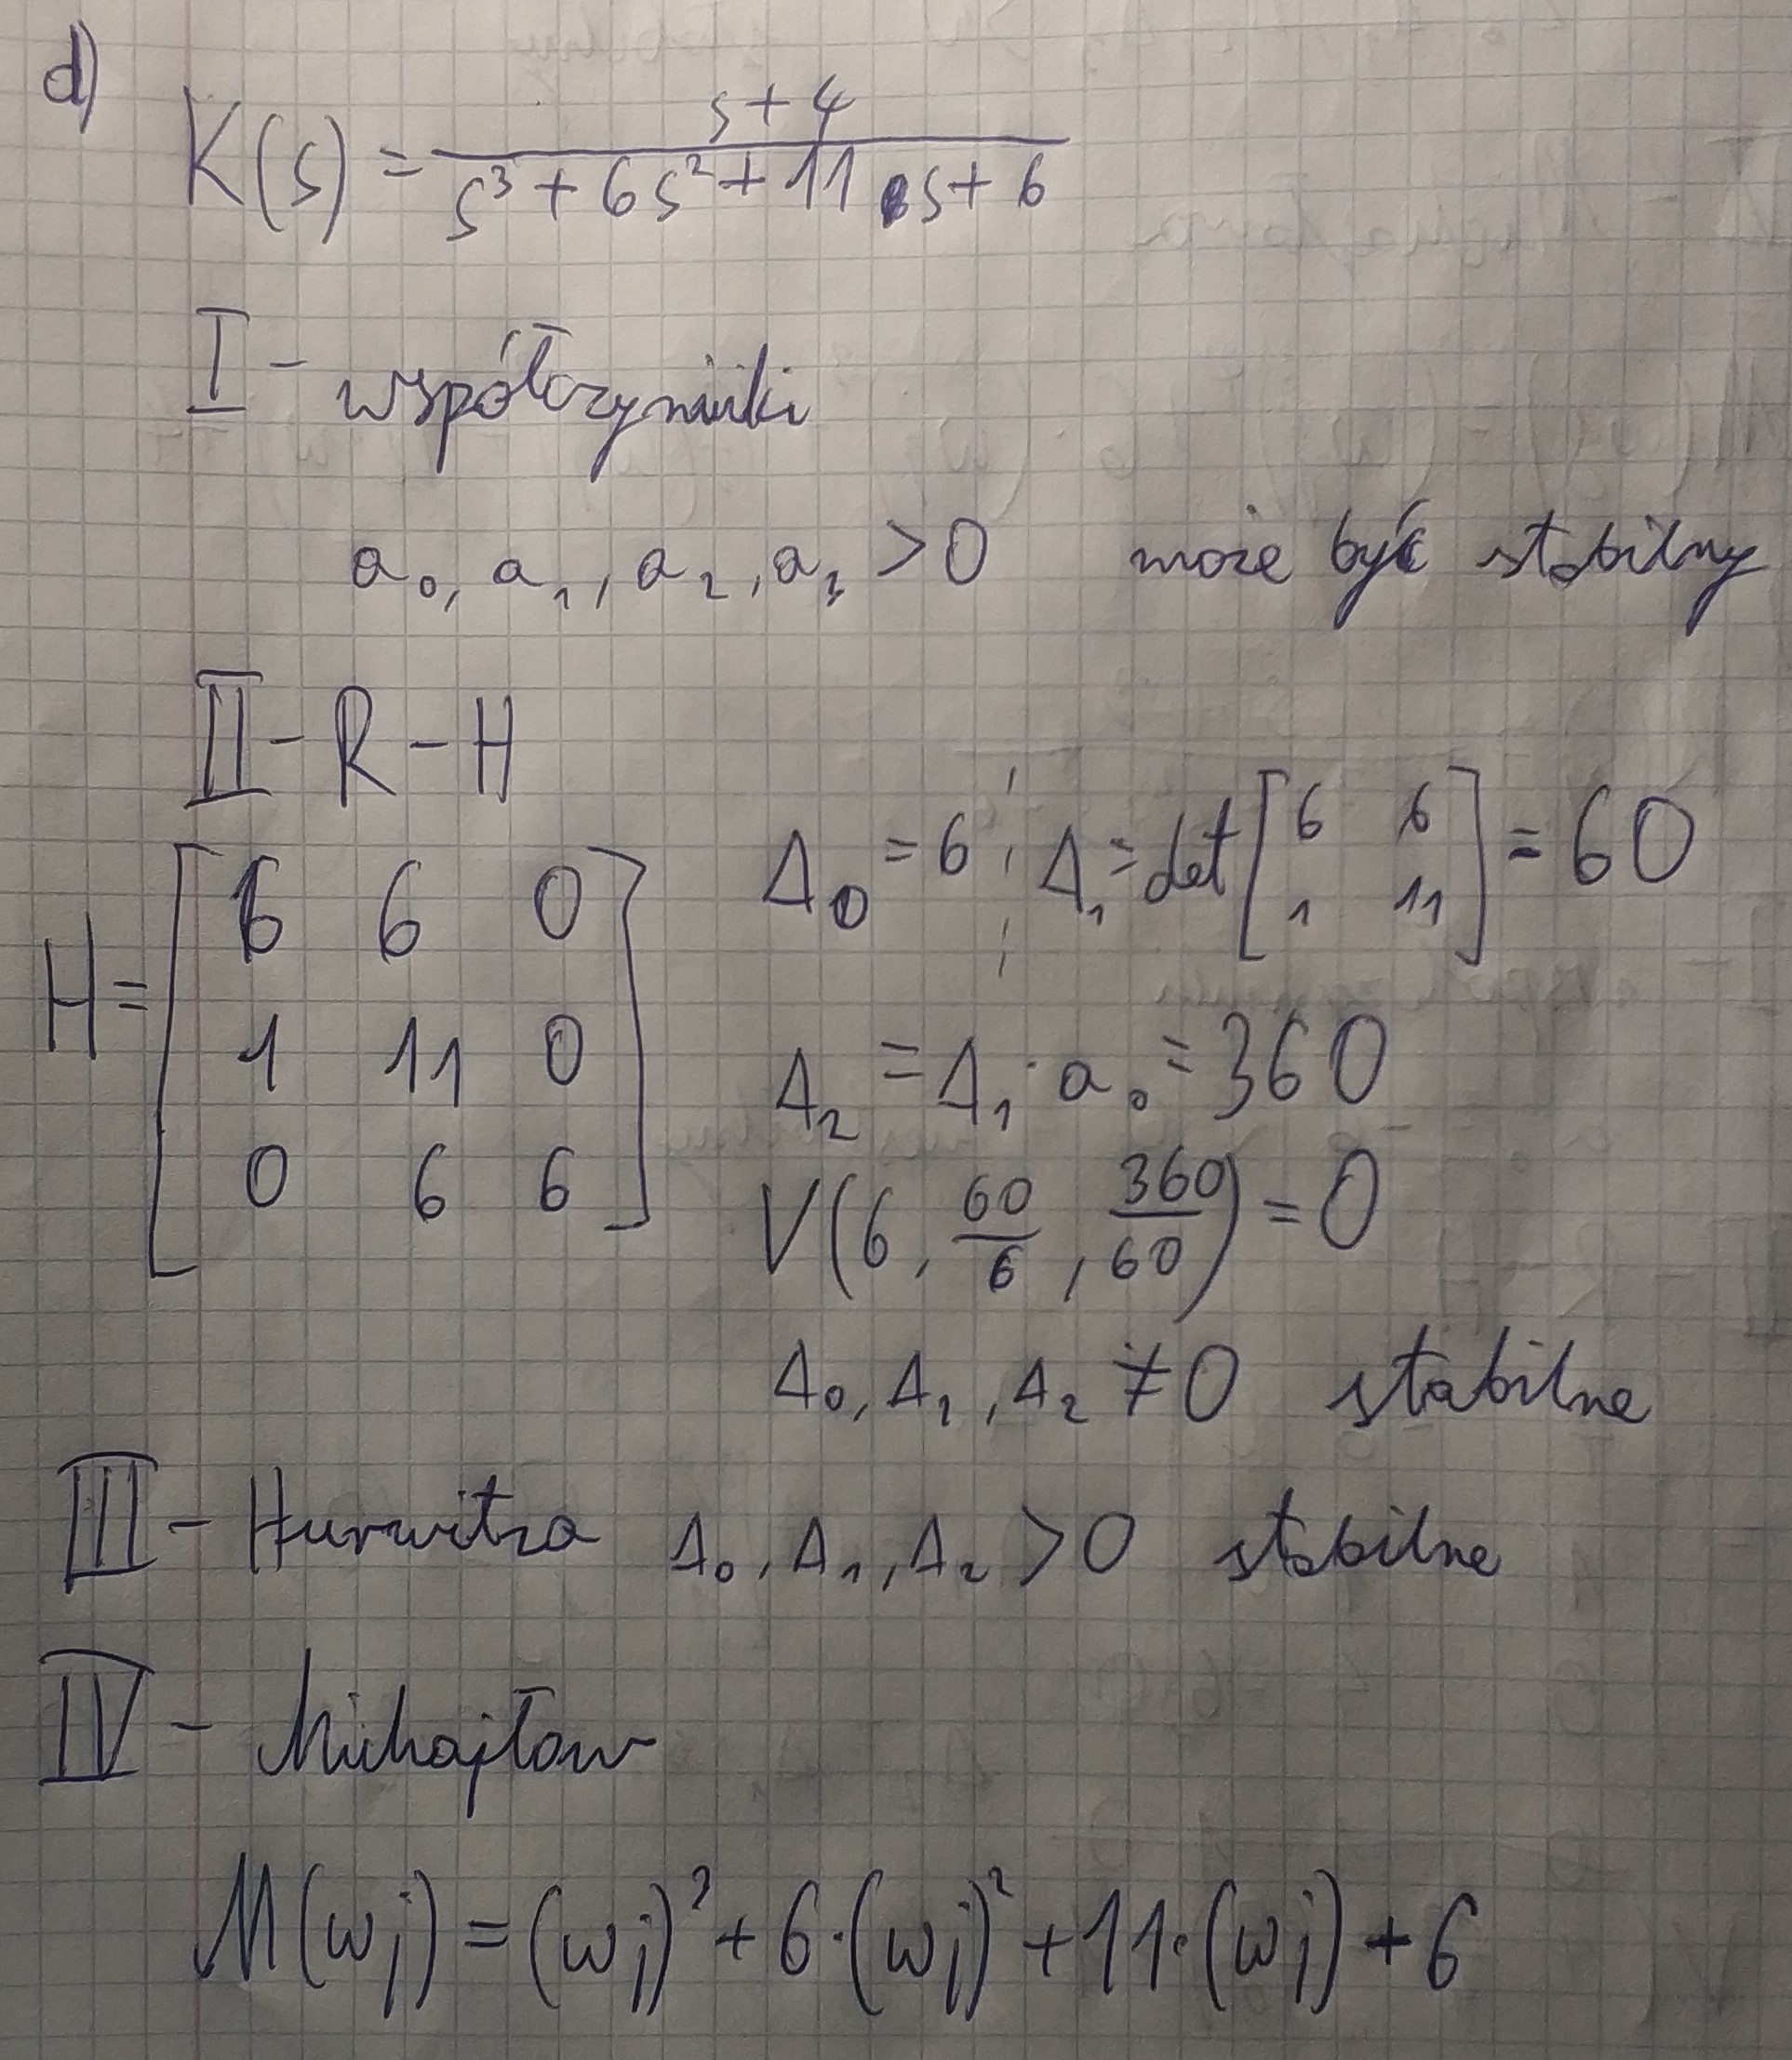 d)
K(s) = \frac{s+4}{s³ + 6s² + 11s + 6}
I - współczyniki
a₀, a₁, a₂, a₃ > 0 może być stabilny
II - R - H
H = [6 6 0; 1 11 0; 0 6 6]
Δ₀ = 6 ; Δ₁ = det [6 6; 1 11] = 60
Δ₂ = Δ₁ · a₀ = 360
V(6, \frac{60}{6}, \frac{360}{60}) = 0
Δ₀, Δ₁, Δ₂ ≠ 0 stabilne
III - Hurwitza Δ₀, Δ₁, Δ₂ > 0 stabilne
IV - Michajłow
M(ωj) = (ωj)³ + 6·(ωj)² + 11·(ωj) + 6